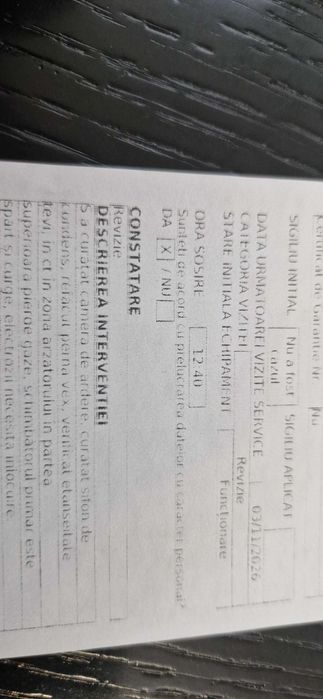 Certificat de Garantie Nr. Nu
SIGILIU INITIAL Nu a fost cazul SIGILIU APLICAT
DATA URMATOAREI VIZITE SERVICE 03/11/2026
CATEGORIA VIZITEI Revizie
STARE INITIALA ECHIPAMENT Functionare
ORA SOSIRE 12.40
Sunteti de acord cu prelucrarea datelor cu caracter personal?
DA [X] / NU [ ]
CONSTATARE
Revizie
DESCRIEREA INTERVENTIEI
S-a curățat camera de ardere, curatat sifon de
condens, refacut perna vex, verificat etanseitate
tevi, in ct in zona arzatorului in partea
superioara pierde gaze, schimbătorul primar este
spart și curge, electrozii necesita inlocuire